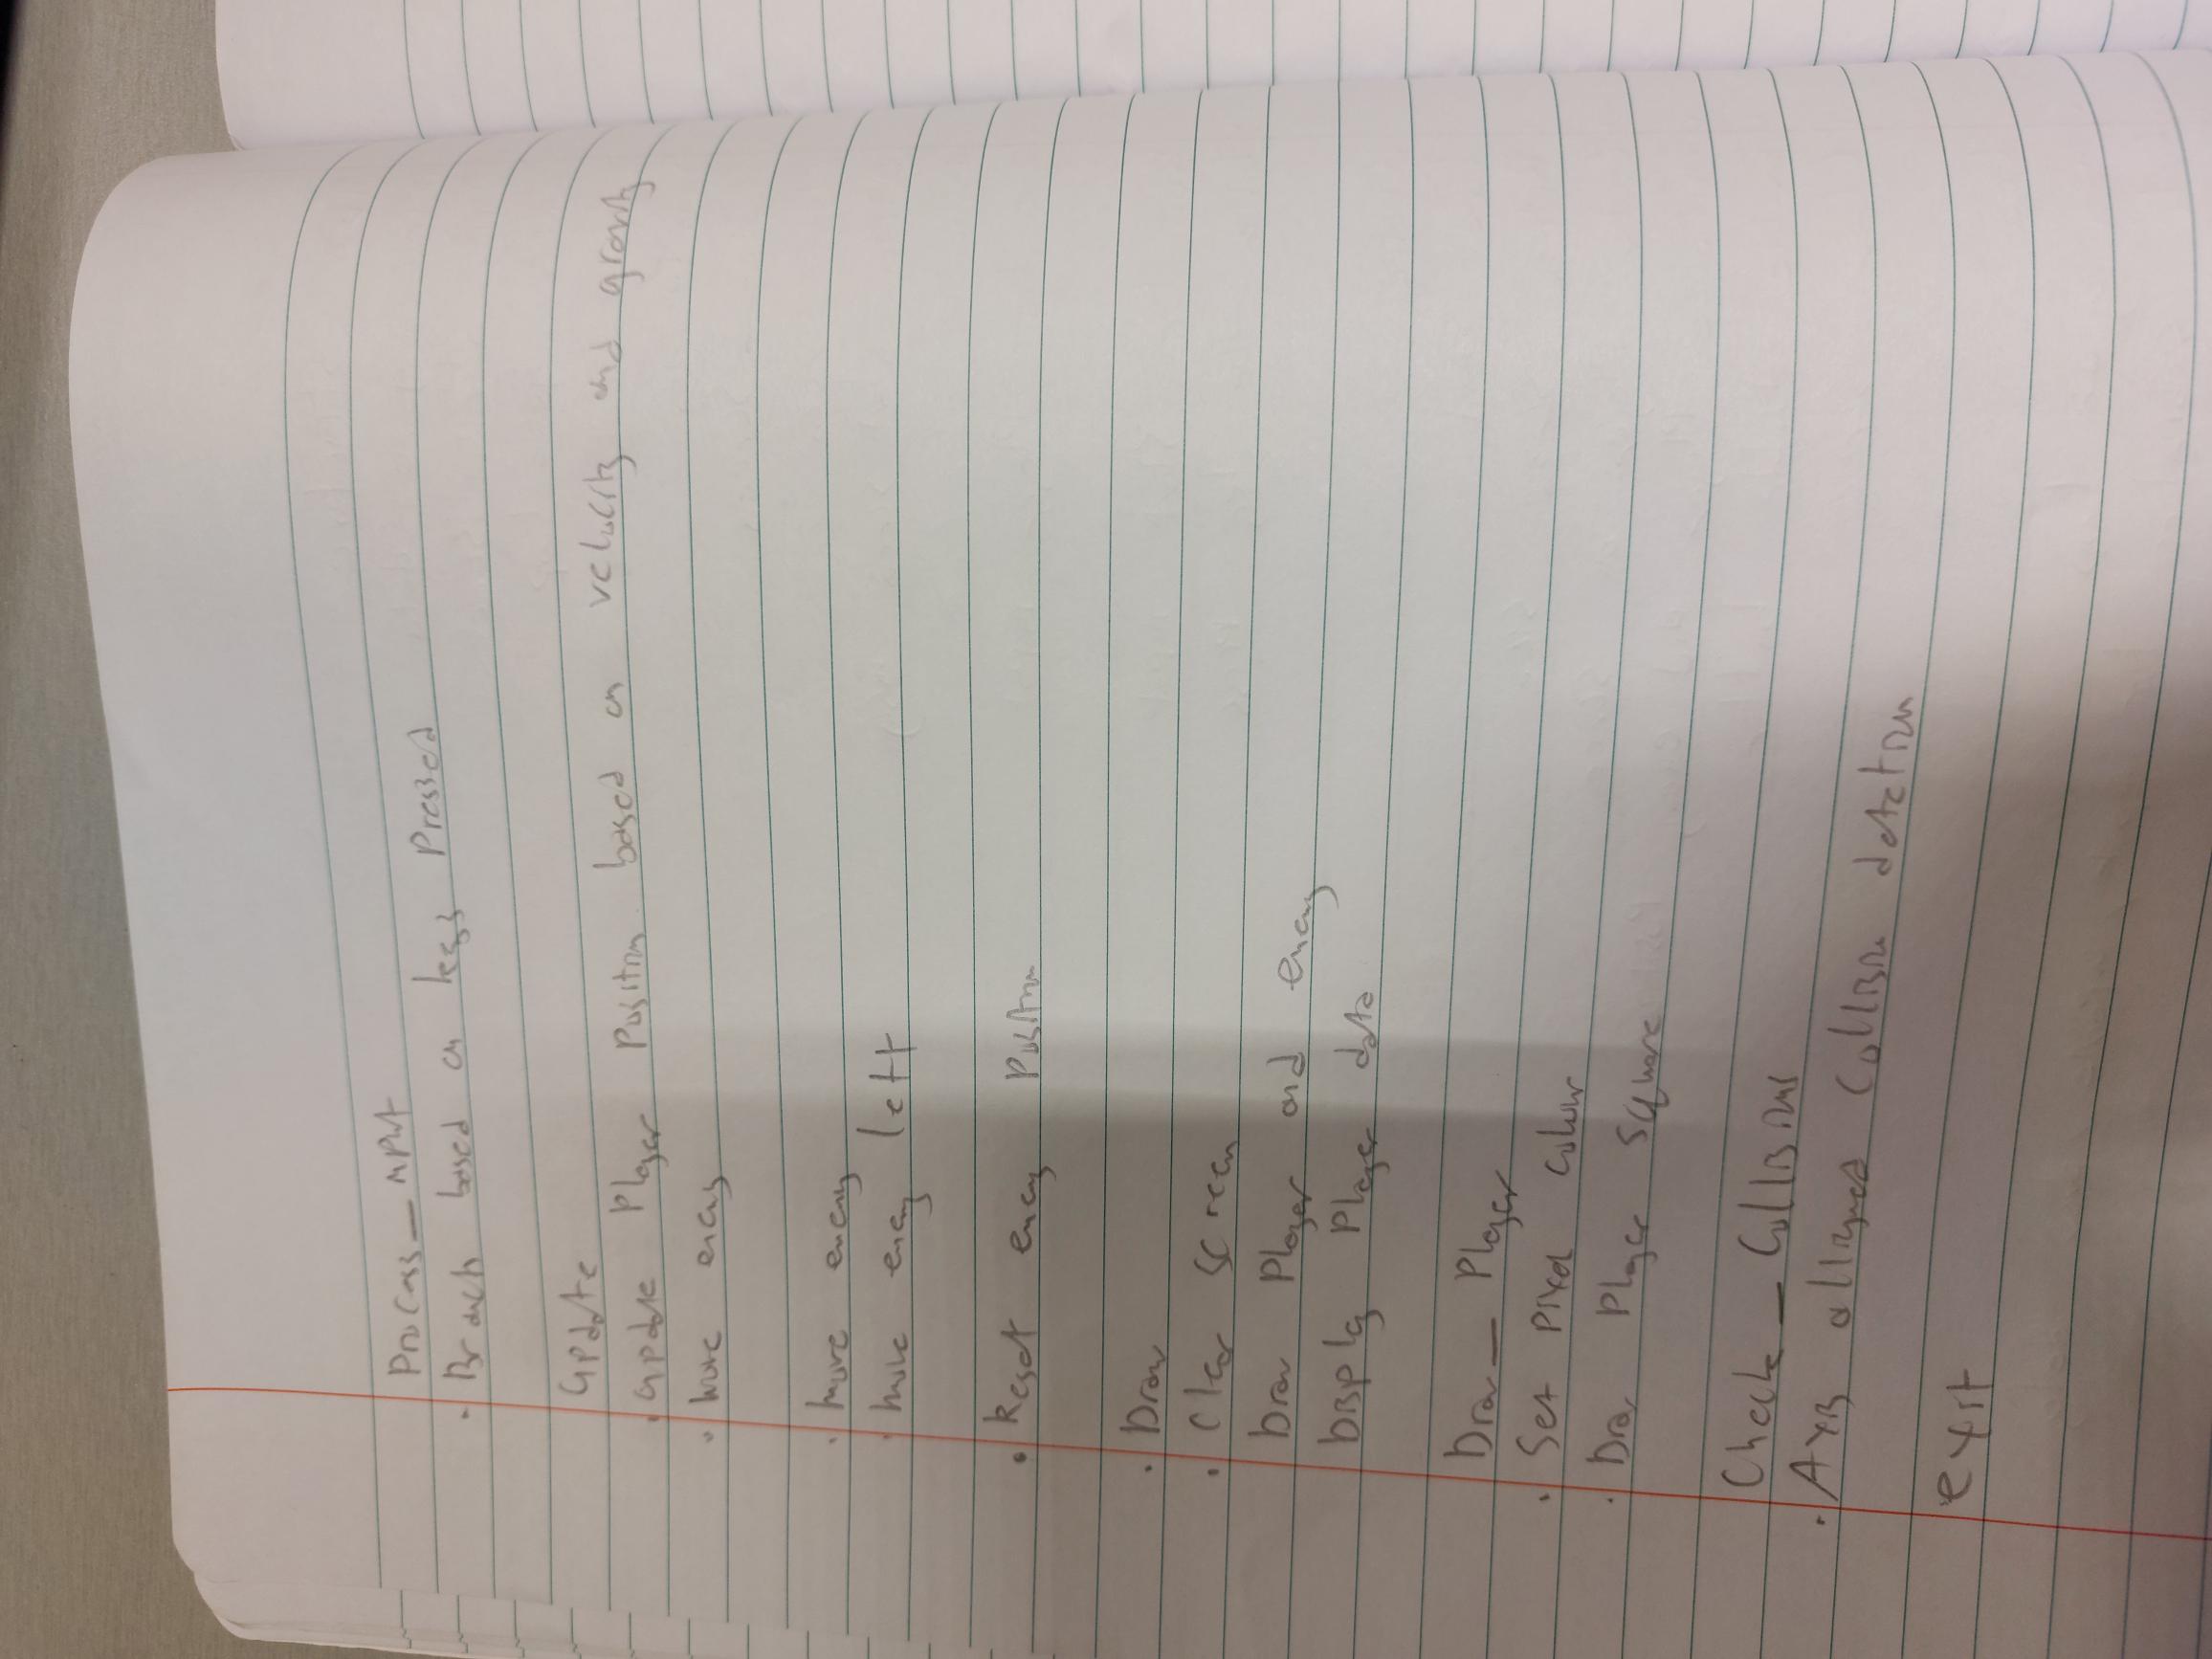 Process_input
. Branch based on keys Pressed
Update
. update Player Position based on velocity and gravity
. move enemy
. move enemy
. move enemy left
. Reset enemy Position
. Draw
. Clear screen
Draw Player and enemy
Display Player data
Draw_Player
. Set pixel colour
. Draw Player square
Check_Collisions
. Axis alligned Collision detection
exit